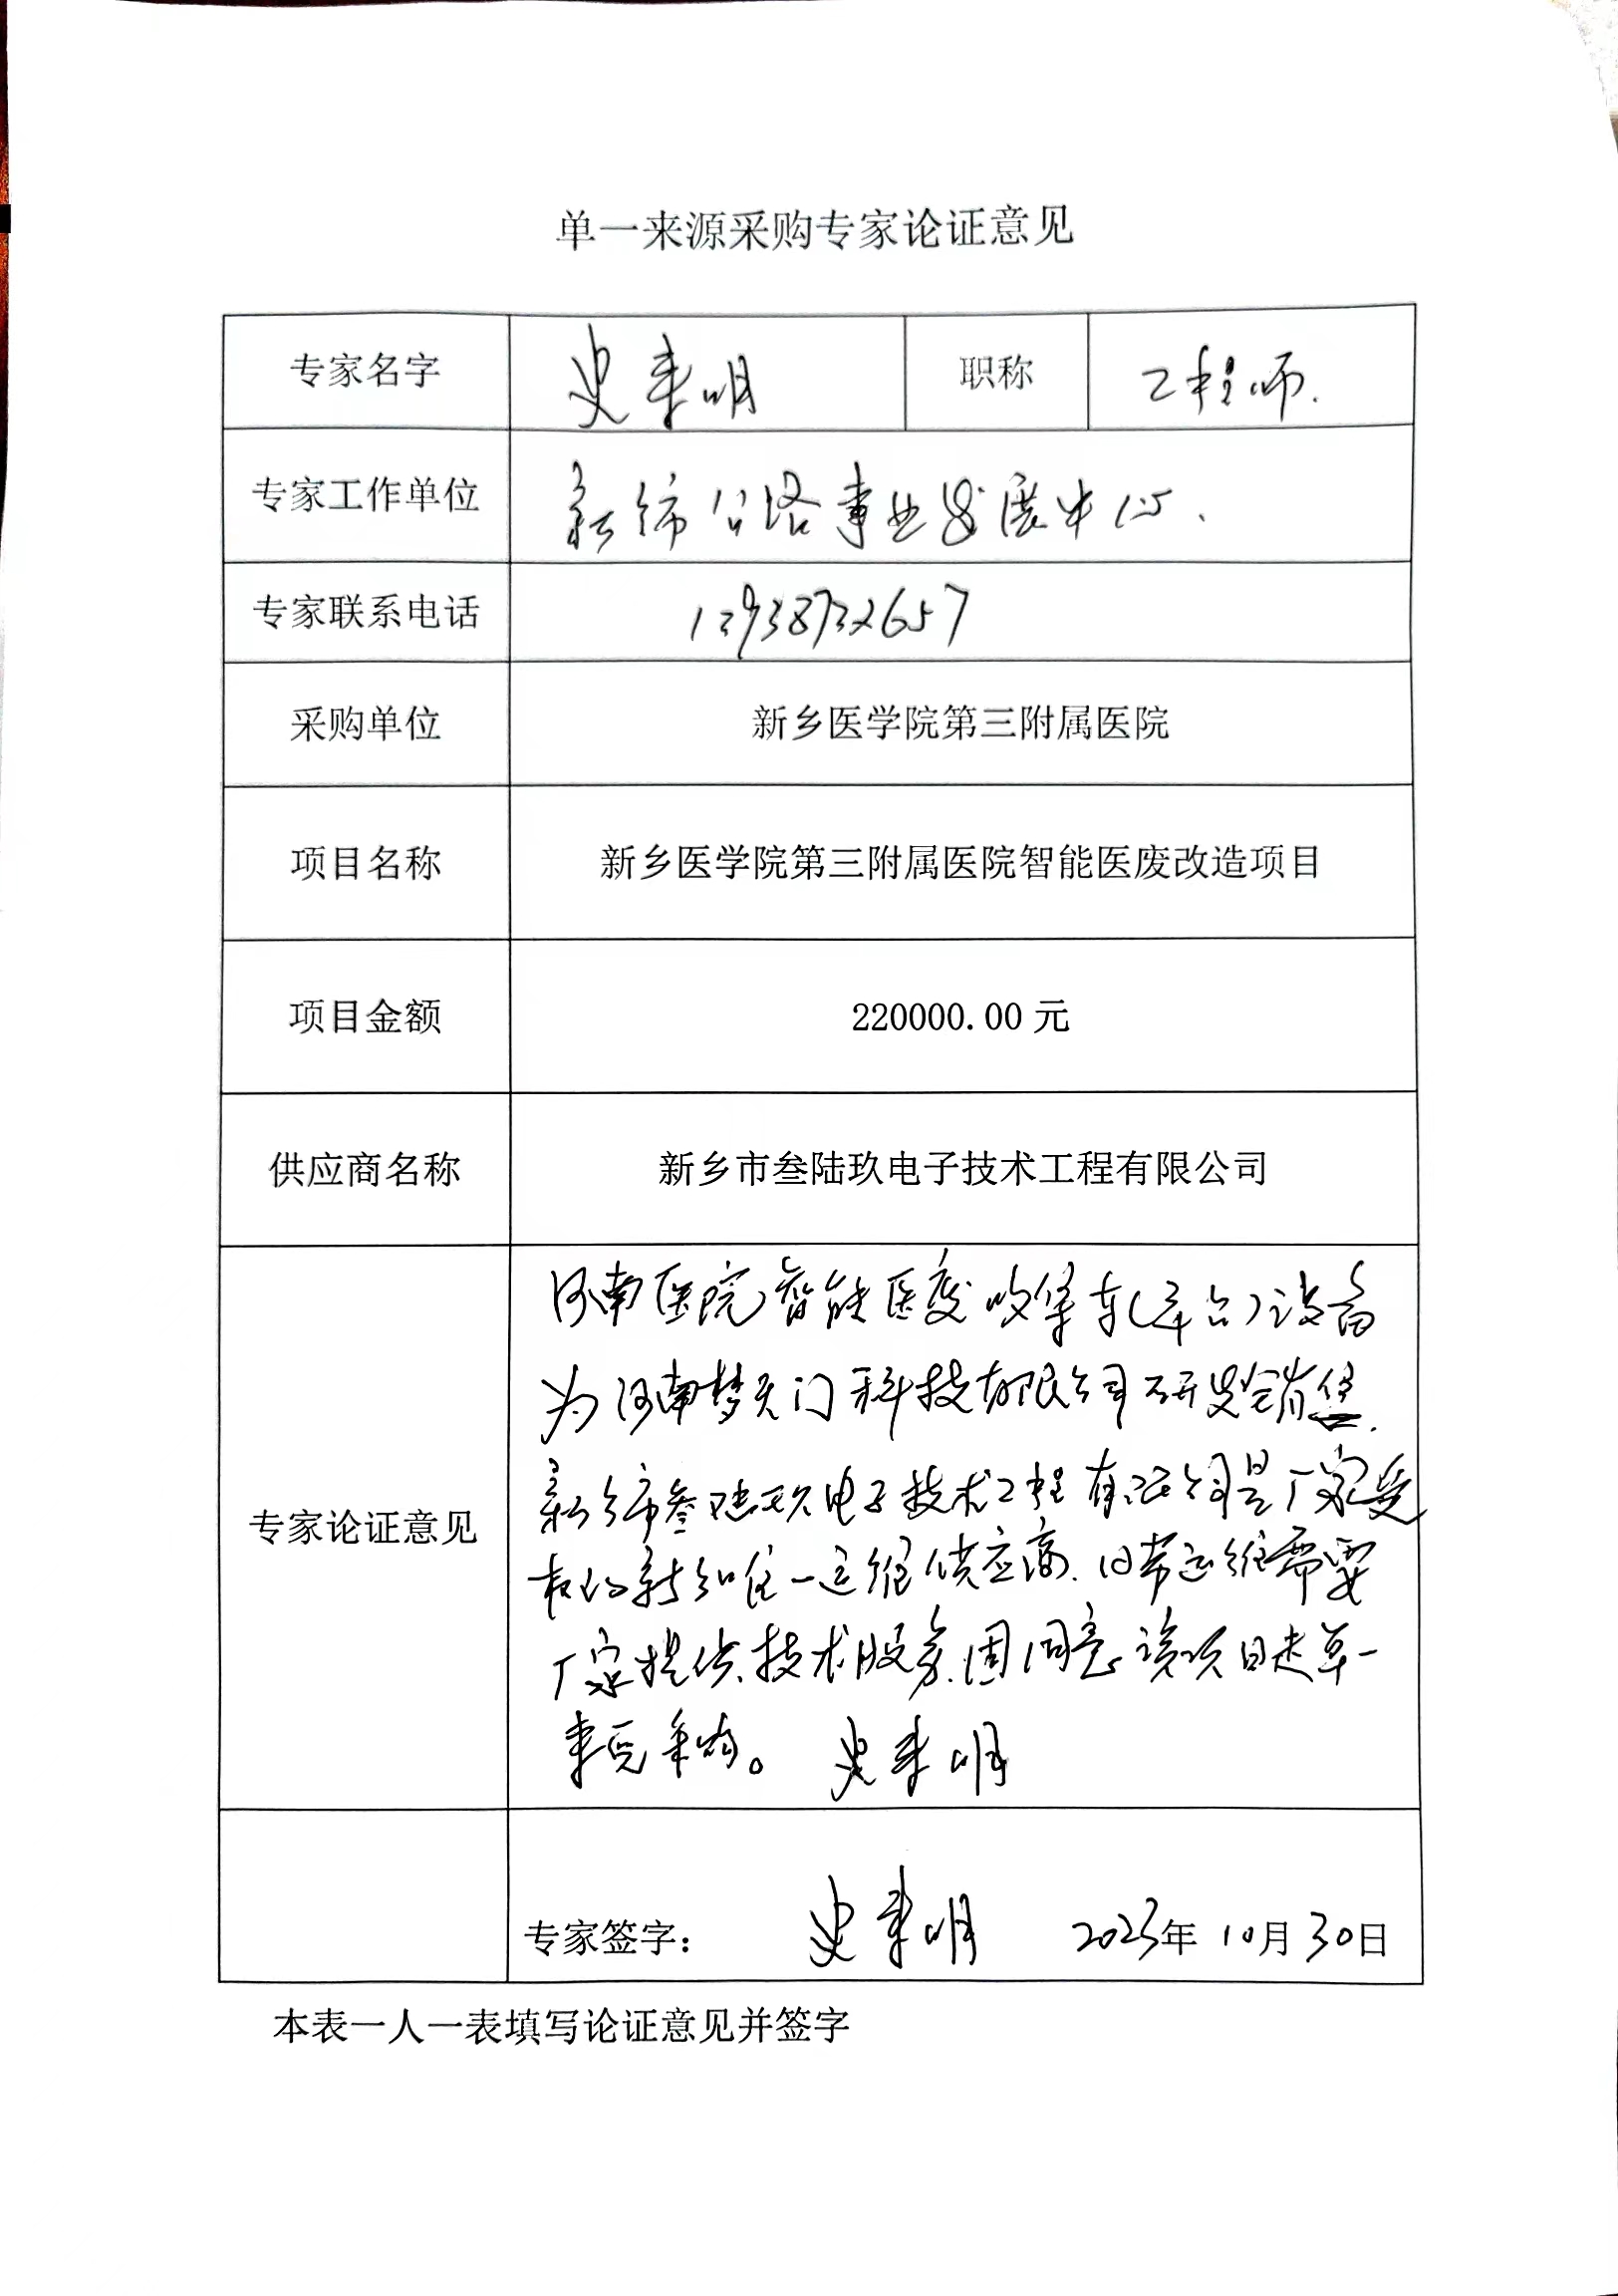 单一来源采购专家论证意见
专家名字 史来明 职称 工程师.
专家工作单位 新乡市公路事业发展中心.
专家联系电话 13938732657
采购单位 新乡医学院第三附属医院
项目名称 新乡医学院第三附属医院智能医废改造项目
项目金额 220000.00 元
供应商名称 新乡市叁陆玖电子技术工程有限公司
专家论证意见
河南医院智能医废收集车(平台)设备
为河南梦天门科技有限公司研发销售.
新乡市叁陆玖电子技术工程有限公司是厂家受
权的新乡唯一运维供应商.日常运维需要
厂家提供技术服务.固同意该项目走单一
来源采购。 史来明
专家签字: 史来明 2023年 10月 30日
本表一人一表填写论证意见并签字